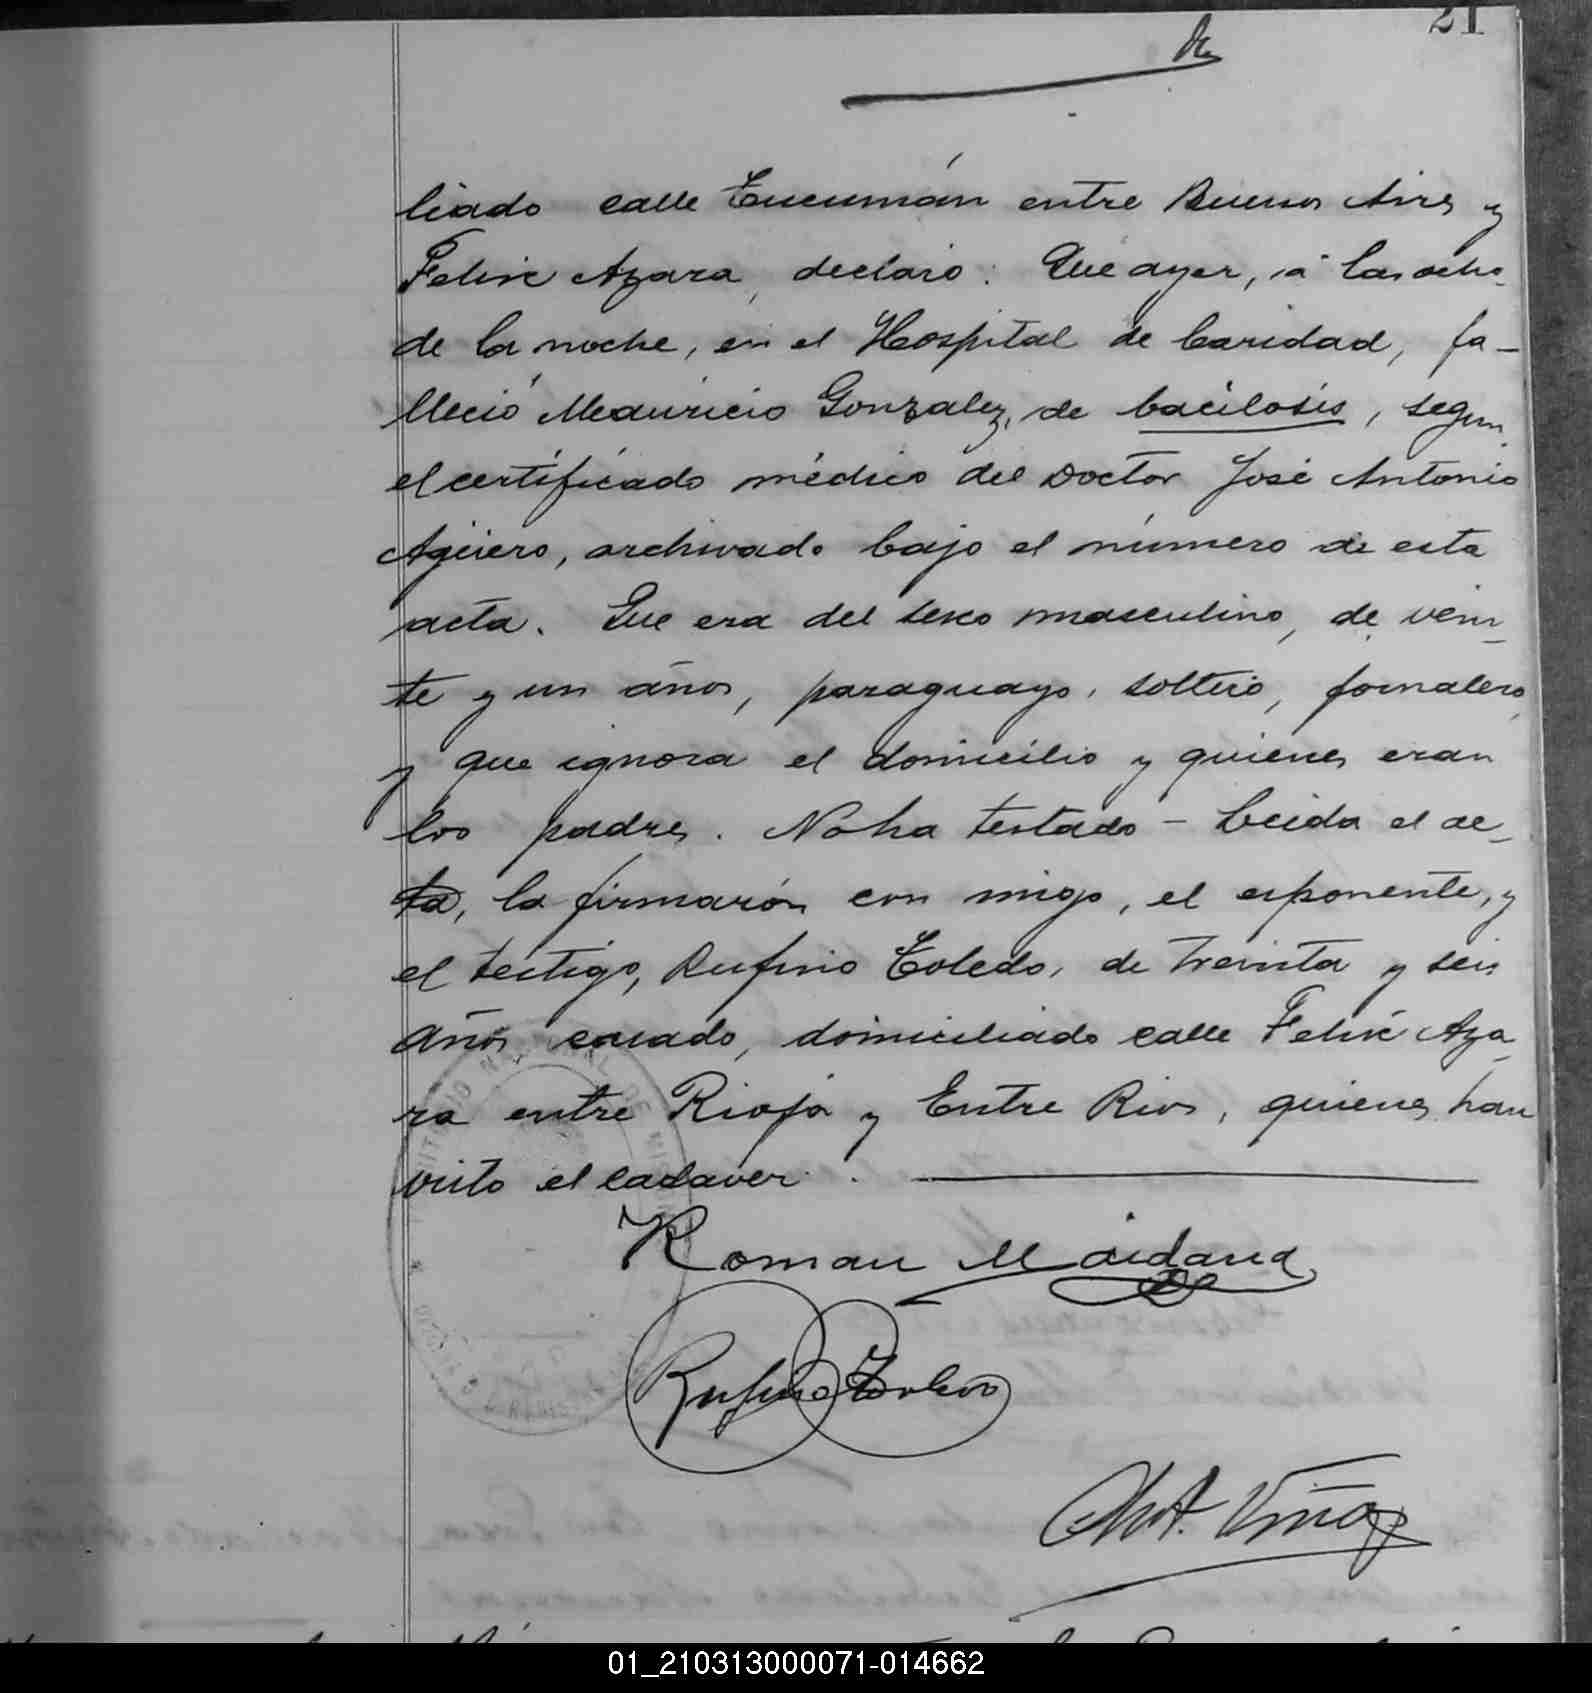 21
liado calle Tucumán entre Buenos Aires y
Felix Azara, declaró: Que ayer, á las ocho
de la noche, en el Hospital de Caridad, fa-
lleció Mauricio Gonzalez, de bacilosis, segun
el certificado médico del Doctor José Antonio
Agüero, archivado bajo el número de esta
acta. Que era del sexo masculino, de vein-
te y un años, paraguayo, soltero, jornalero,
y que ignora el domicilio y quienes eran
los padres. No ha testado - Leida el ac-
ta, la firmarón con migo, el exponente, y
el testigo, Rufino Toledo, de treinta y seis
años casado, domiciliado calle Felix Aza-
ra entre Rioja y Entre Rios, quienes han
visto el cadaver.
Roman Maidana
Rufino Toledo
Viña
01_210313000071-014662